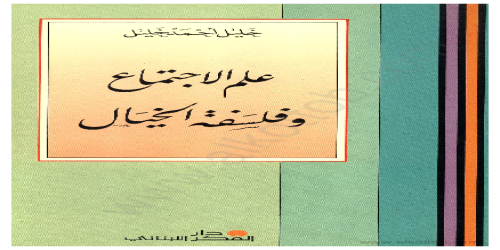 خليل أحمد خليل
علم الاجتماع
وفلسفة الخيال
دار
الفكر اللبناني